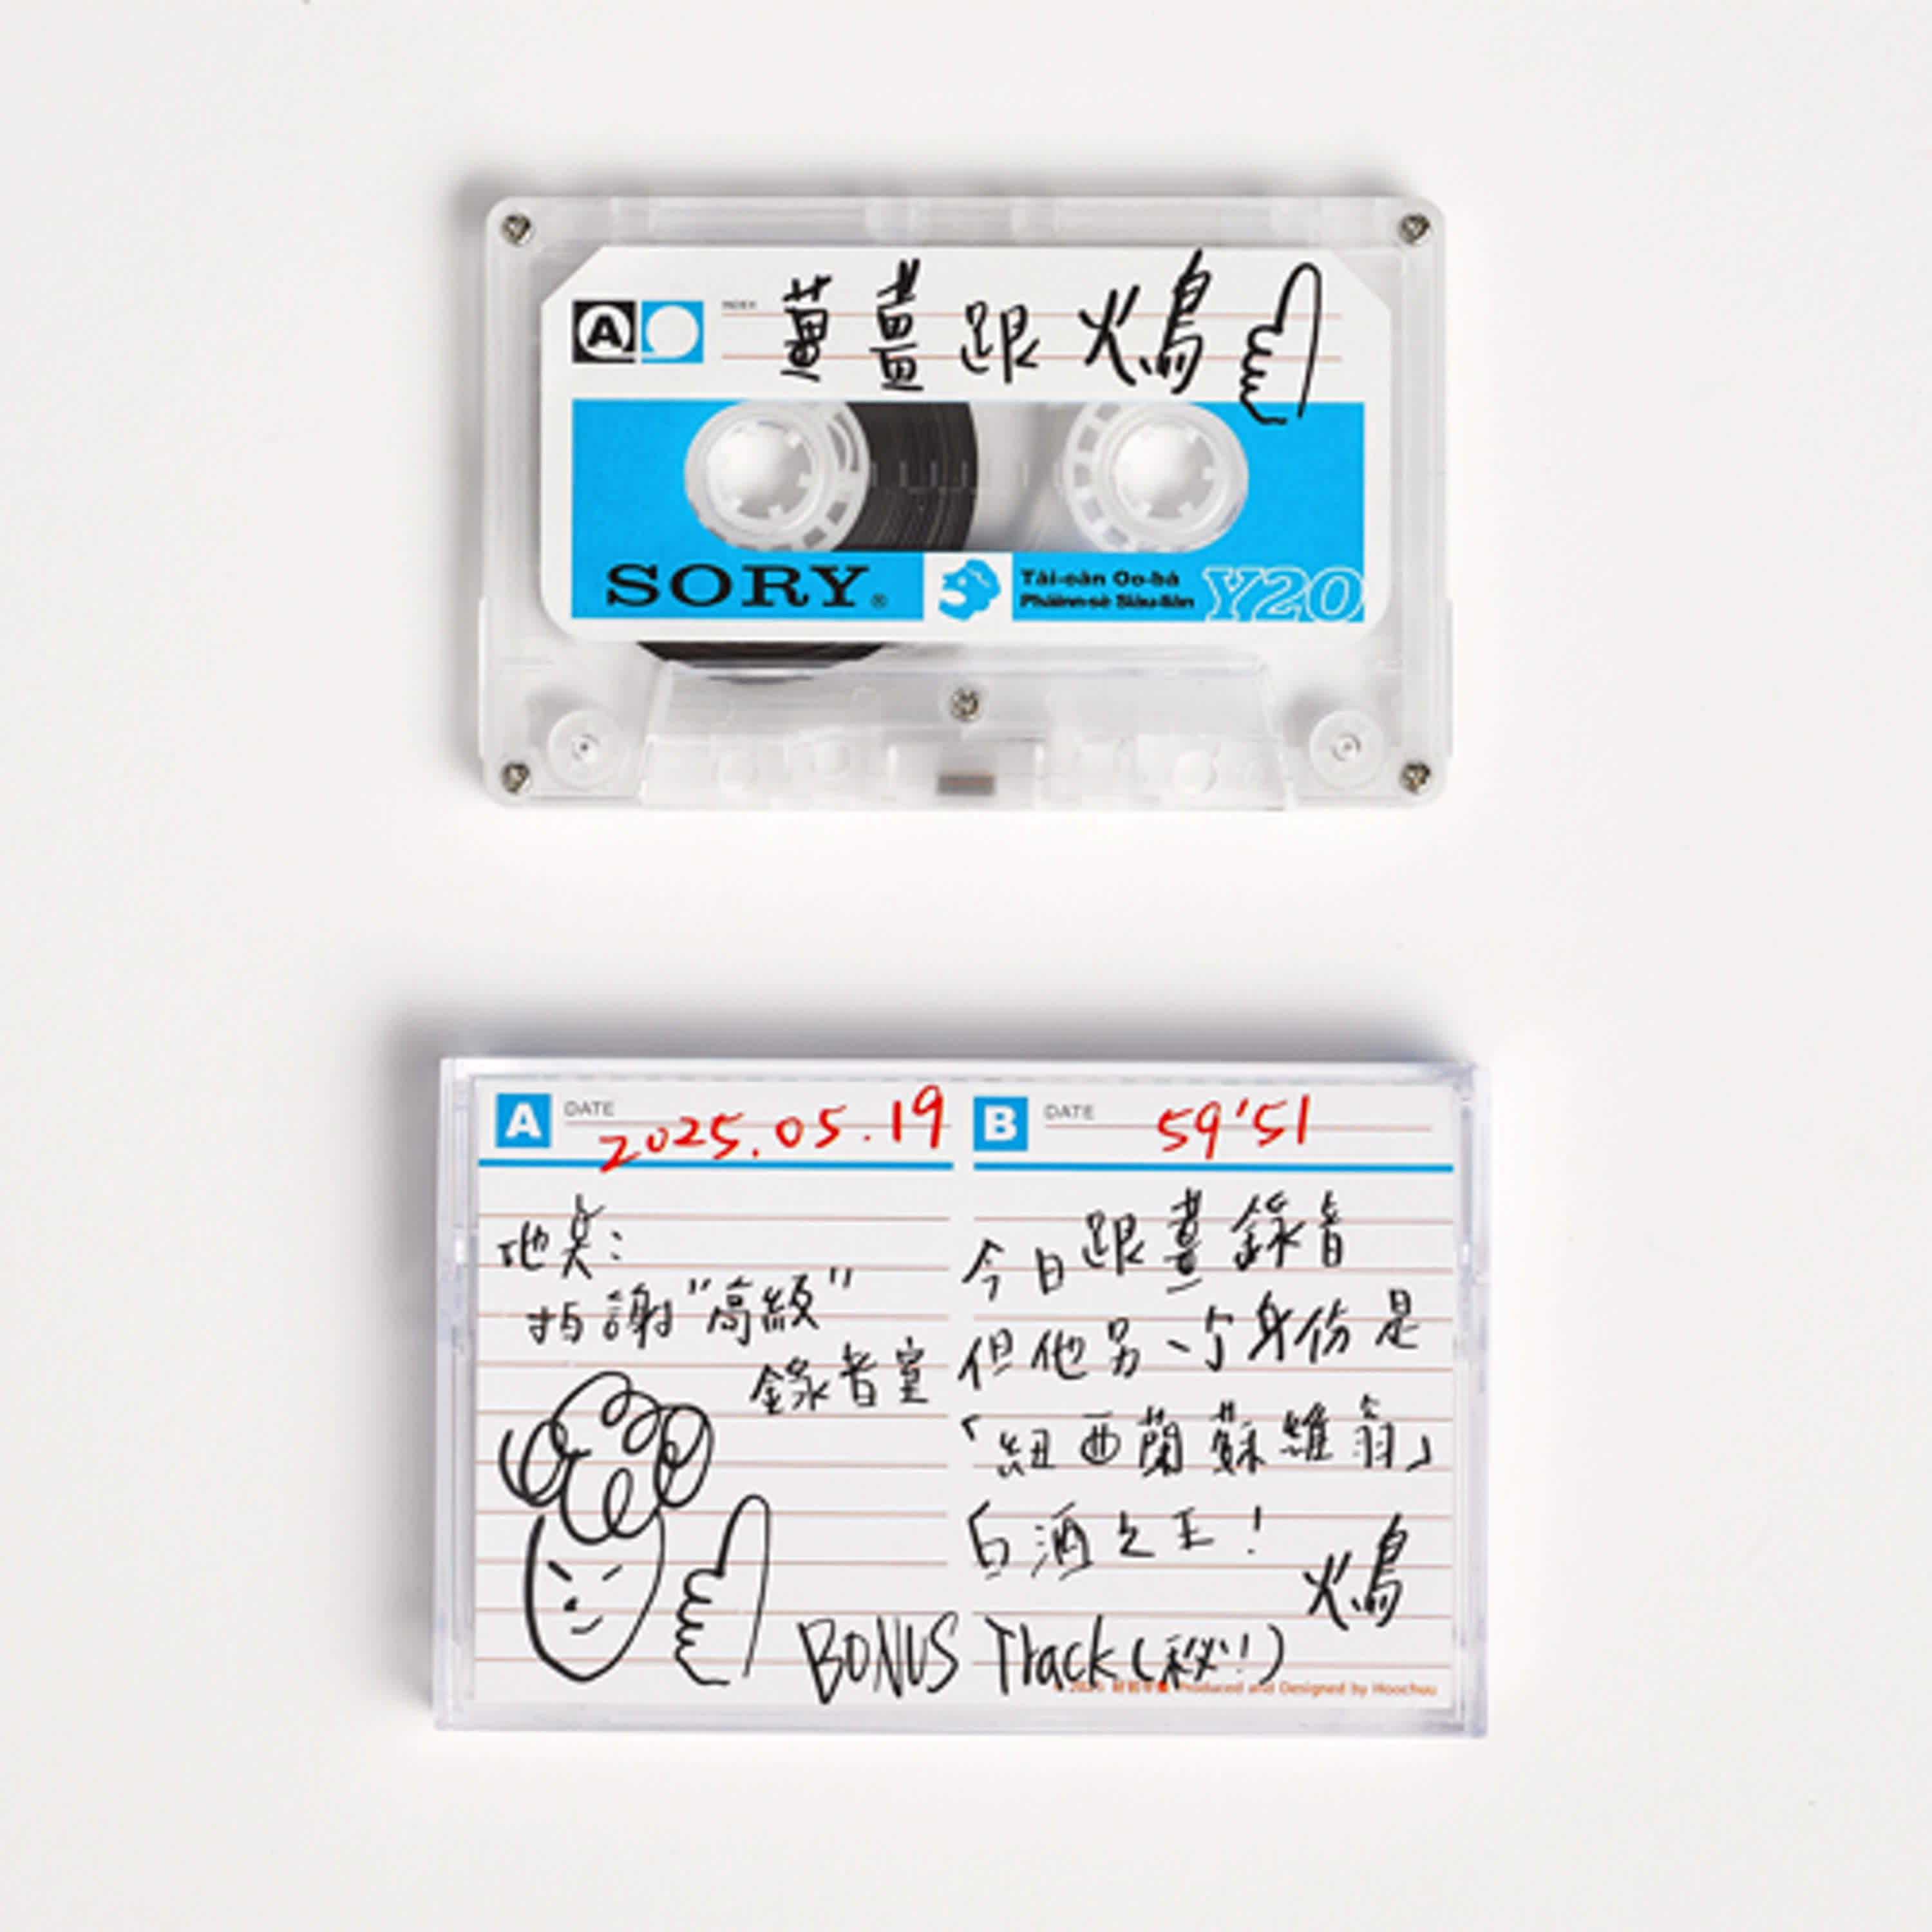 A
INDEX
薑薑跟火鳥
SORY®
Tâi-oân Oo-bá
Y20
A DATE 2025.05.19
B DATE 59'51
地点:
拍謝"高級"
錄音室
今日跟薑錄音
但他另一个身份是
「紐西蘭蘇維翁」
白酒之王!
火鳥
BONUS Track(秘!!)
Produced and Designed by Hoochuu